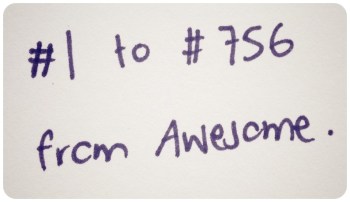 #1 to #756
from Awesome.